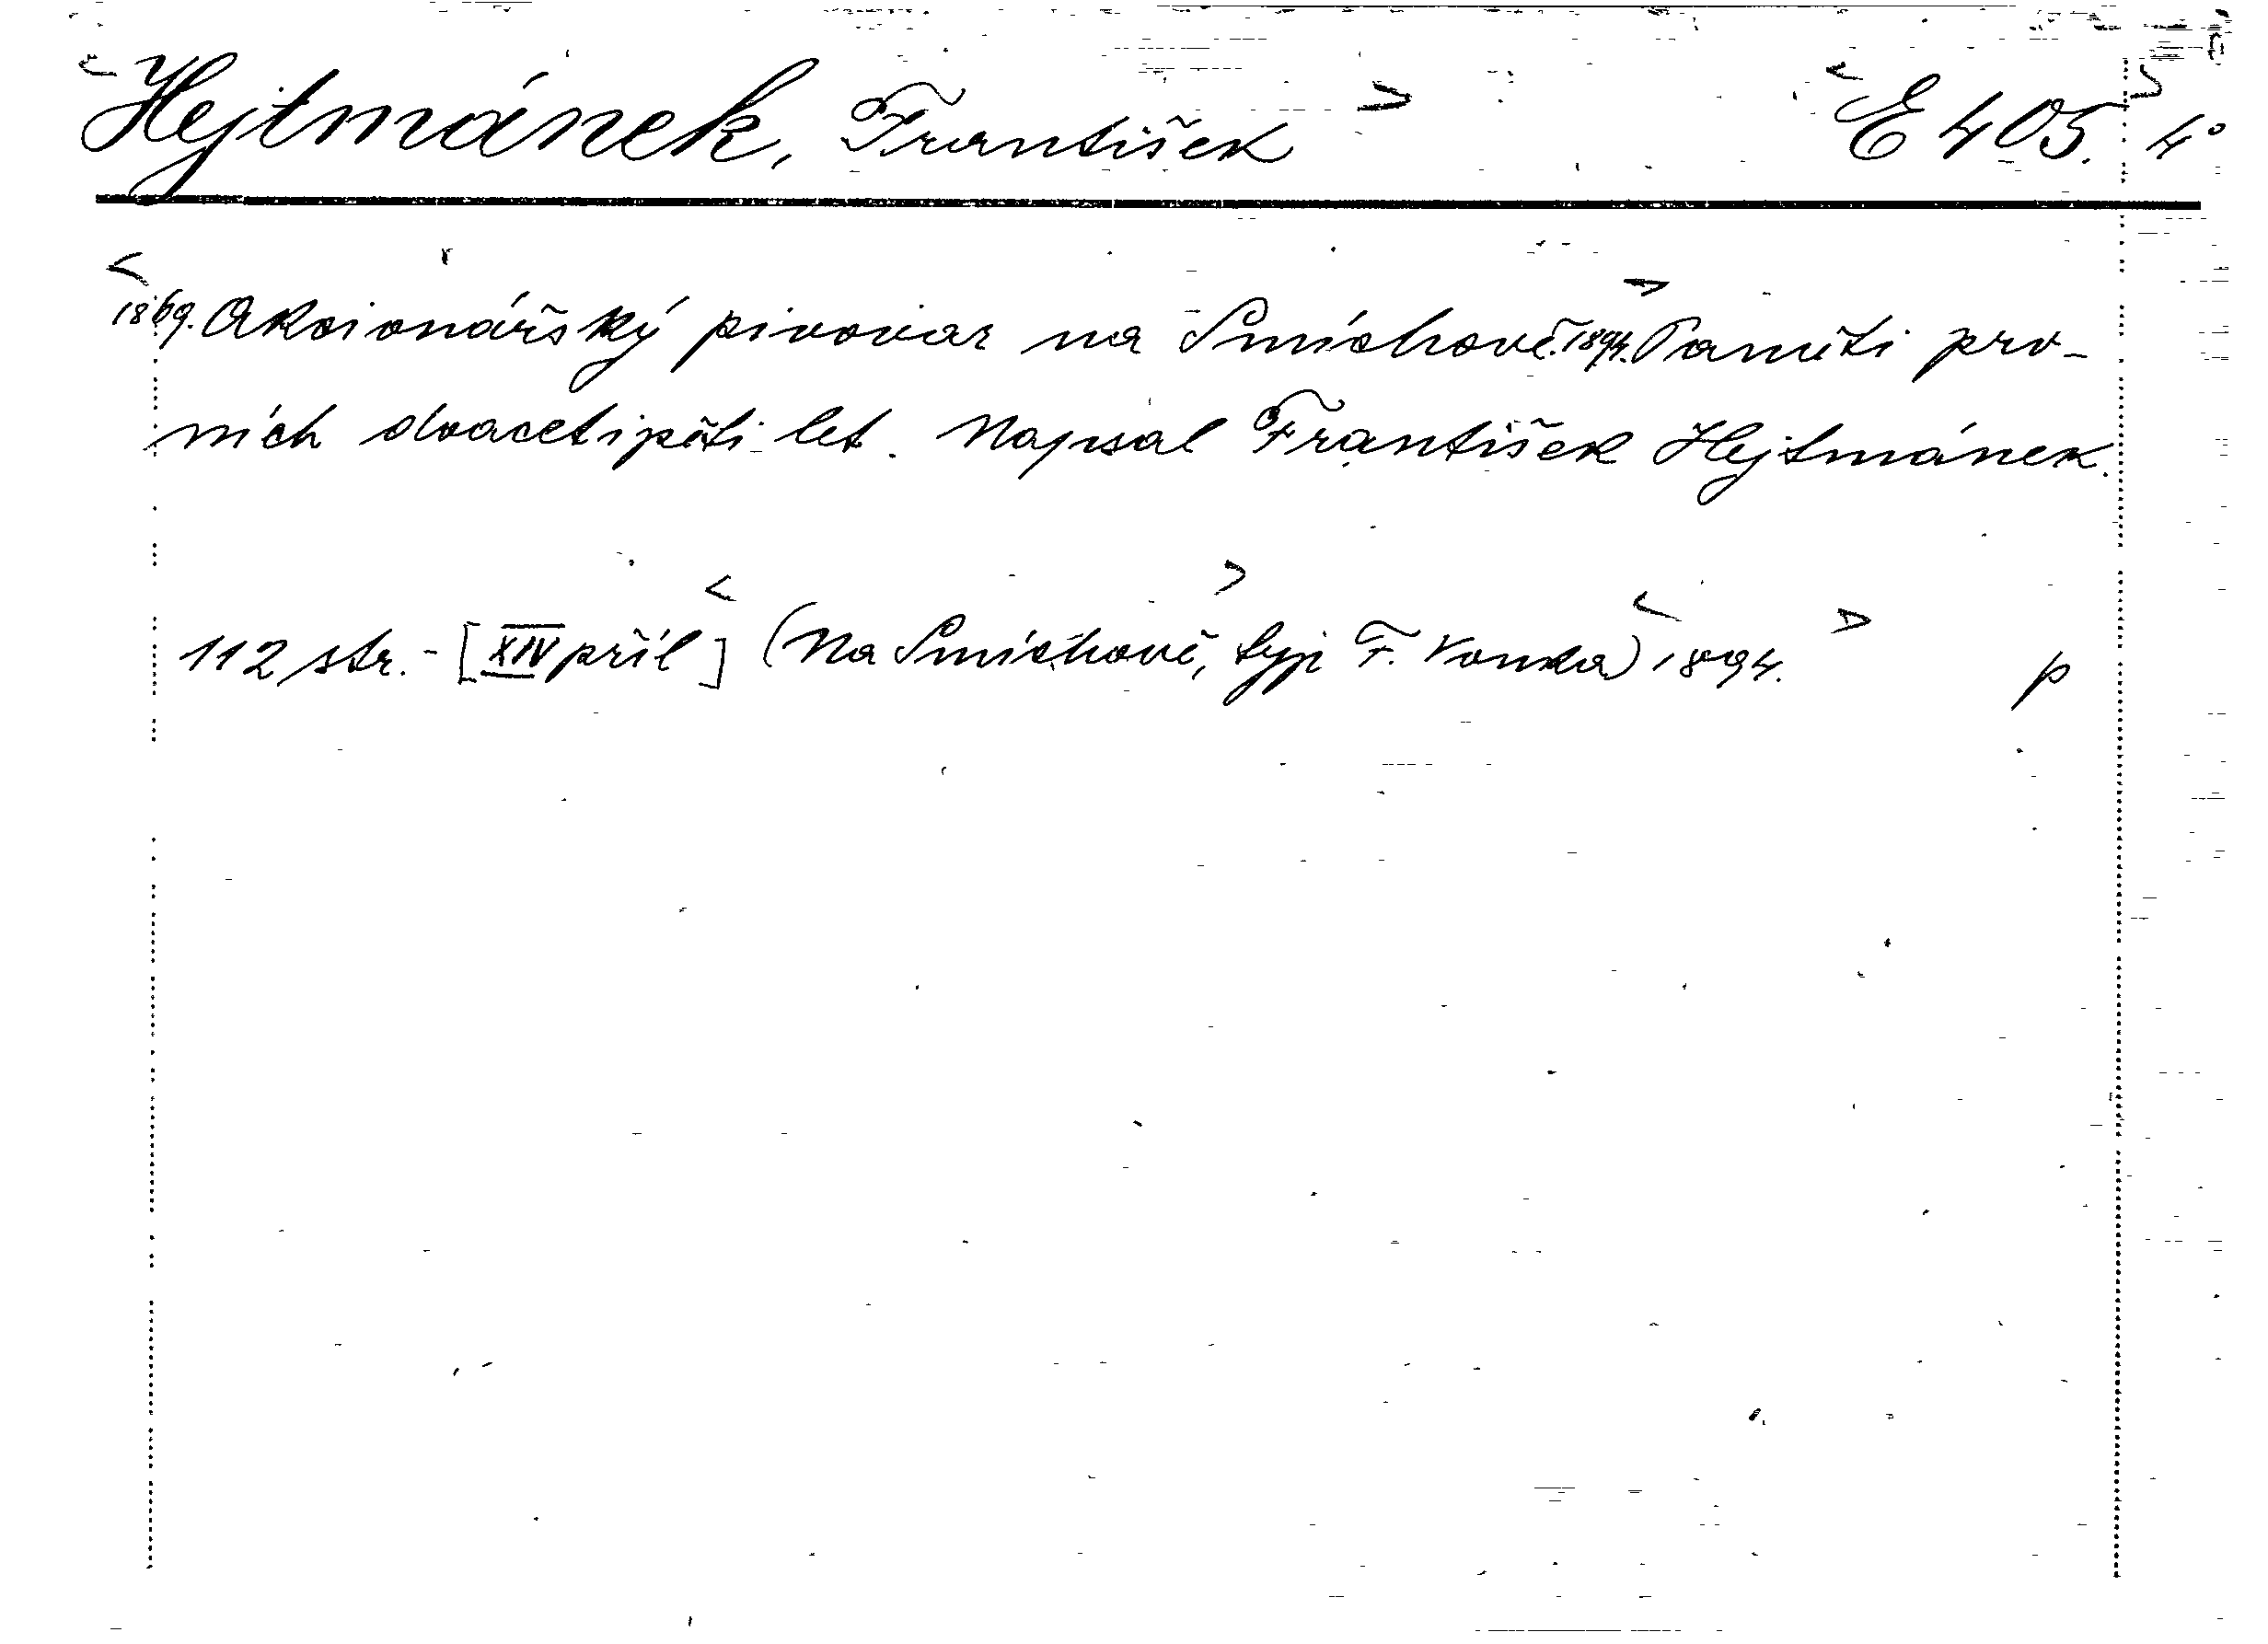 <Hejtmánek, František> <E 405.> 4°
<1869. Akcionářský pivovar na Smíchově. 1894.> Paměti prv-
ních dvacetipěti let. Napsal František Hejtmánek.
112 str. - [XIV příl] <(Na Smíchově,> typ F. Vonka) <1894.> p